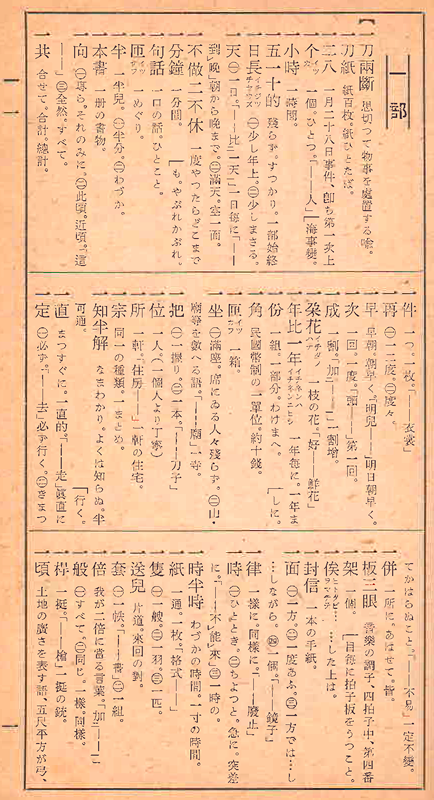 【一部】
一刀兩斷 思切つて物事を處置する喩。
一刀紙 紙百枚、紙ひとたば。
一二八 一月二十八日事件、卽ち第一次上
一个 一個。ひとつ。「——人」「海事變。
一小時 一時間。
一五一十的 殘らず。すつかり。一部始終
一日長 ㊀少し年上。㊁少しまさる。
一天 ㊀一日。「——比一天」一日每に「——
到晚」朝から晚まで。㊁滿天。空一面。
一不做二不休 一度やつたらどこまで
一分鐘 一分間。 「もやぶれかぶれ。
一句話 一口の話。ひとこと。
一匝 一めぐり。
一半 一半兒。㊀半分。㊁わづか。
一本書 一册の書物。
一向 ㊀專ら。それのみに。㊁此頃。近頃。「這
——」㊂全然。すべて。
一共 合せて。合計。總計。
一件 一つ。一枚。「——衣裳」
一再 ㊀一二度。㊁度々。
一早 早朝。朝早く。「明兒——」明日朝早く。
一次 一回。一度。「頭——」第一回。
一成 一割。「加——」一割增。
一朶花 一枝の花。「好——鮮花」
一年比一年 一年每に。一年ま
一份 一組。一部分。わけまへ。 「しに。
一角 民國幣制の一單位。約十錢。
一匣 一箱。
一坐 ㊀滿座。席にゐる人々殘らず。㊁山・
廟等を數へる語。「——廟」一寺。
一把 ㊀一握り。㊁一本。「——刀子」
一位 一人（一個人より丁寧）
一所 一軒。「——住房」一軒の住宅。
一宗 同一の種類。一まとめ。
一知半解 なまわかり。よくは知らぬ。半
可通。 「行く。
一直 まつすぐに。一直的。「——走」眞直に
一定 ㊀必ず。「——去」必ず行く。㊁きまつ
てかはらぬこと。「——不易」一定不變。
一併 一所に。あはせて。皆。
一板三眼 音樂の調子、四拍子中、第四番
一架 一個。 「目每に拍子板をうつこと。
一俟 …した上は。
一封信 一本の手紙。
一面 ㊀一方。㊁一度あふ。㊂一方では…し
…しながら。㊃一個。「——鏡子」
一律 一樣に。同樣に。「——廢止」
一時 ㊀ひととき。㊁ちよつと。急に。突差
に。「——不能來」㊂一時の。
一時半時 わづかの時間。一寸の時間。
一紙 一通。一枚。「格式——」
一隻 ㊀一艘。㊁一羽。㊂一匹。
一送兒 片道。來回の對。
一套 ㊀一帙。「——書」㊁一組。
一倍 我が二倍に當る言葉。「加——」
一般 ㊀すべて。㊁同じ。一樣。同樣。
一桿 一挺。「——槍」一挺の銃。
一頃 土地の廣さを表す語、五尺平方が弓、